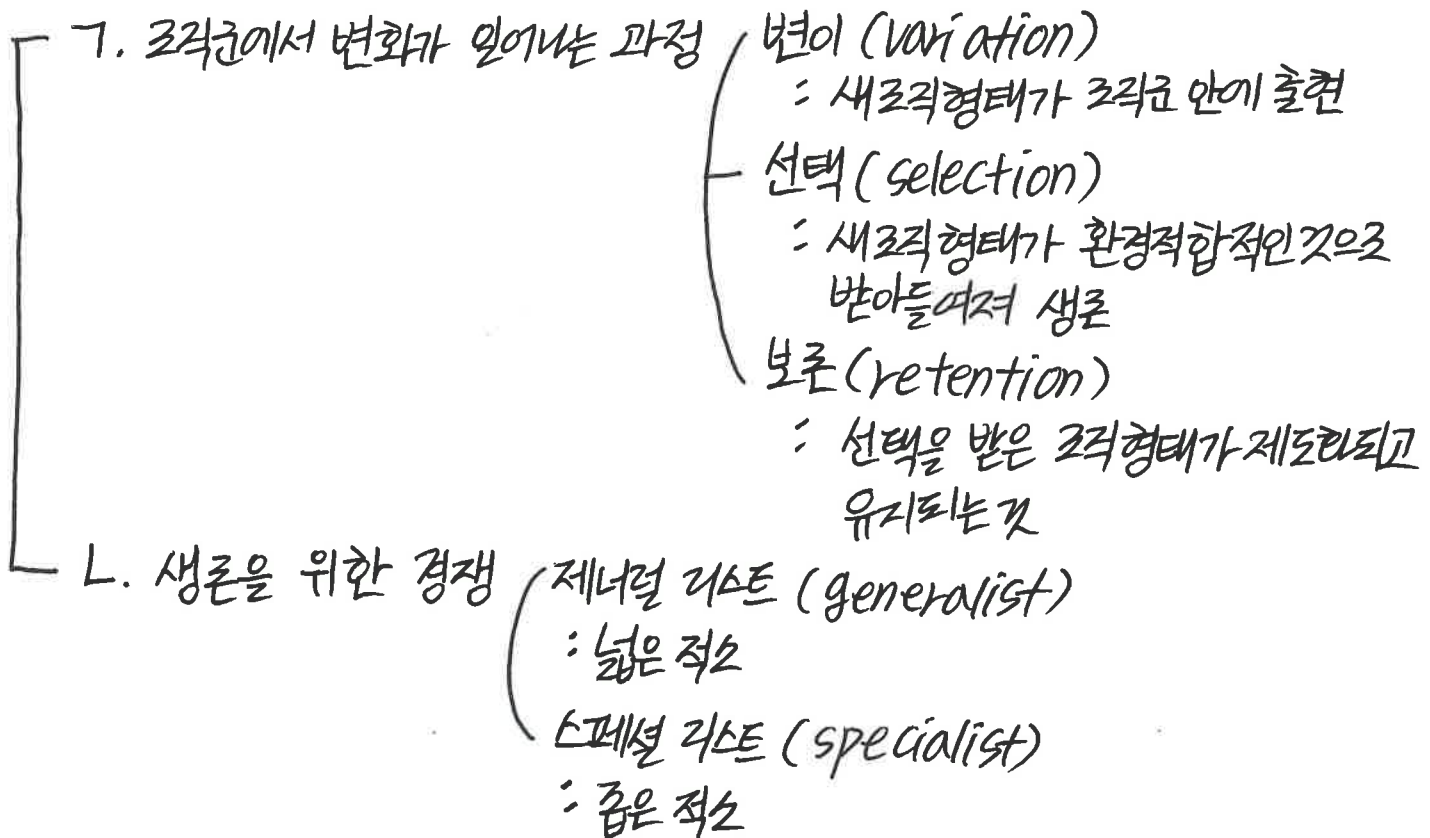 ㄱ. 조직군에서 변화가 일어나는 과정
변이 (variation)
: 새조직형태가 조직군 안에 출현
선택 (selection)
: 새조직형태가 환경적합적인것으로
받아들여져 생존
보존 (retention)
: 선택을 받은 조직형태가 제도화되고
유지되는 것
ㄴ. 생존을 위한 경쟁
제너럴 리스트 (generalist)
: 넓은 적소
스페셜 리스트 (specialist)
: 좁은 적소